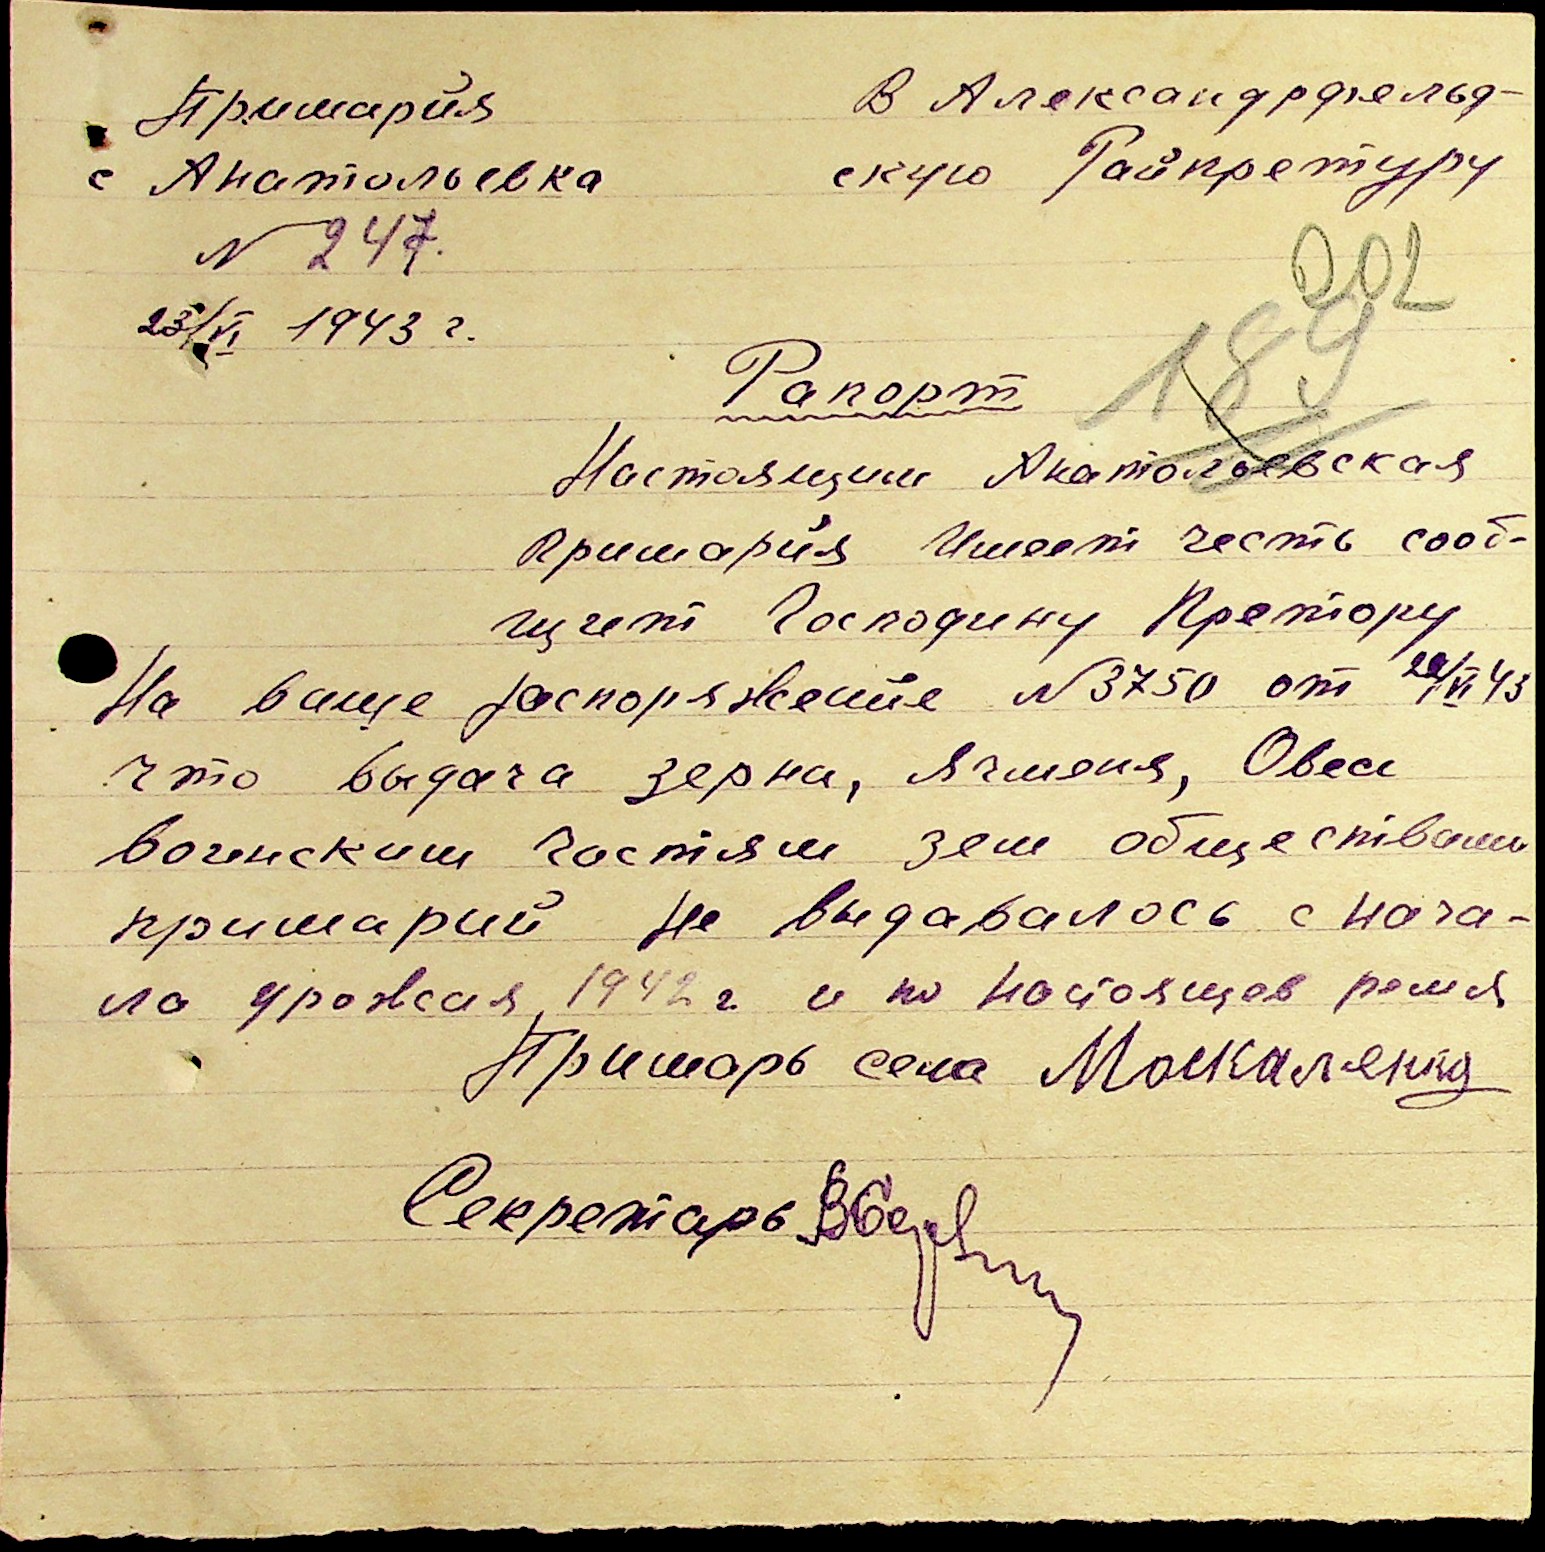 Примарйя
с Анатольевка
N 247.
23/VI 1943 г.
В Александрфельд-
скую Райпретуру
202
189
Рапорт
Настоящим Анатольевская
примарйя Имеет честь сооб-
щует Господину Претору
На ваще распоряжение N 3750 от 22/VI 43
что выдача зерна, ячменя, Овса
воинским частям зем обществами
примарий не выдавалось с нача-
ла урожая 1942 г и по настоящев ремя
Примарь села Москаленко
Секретарь